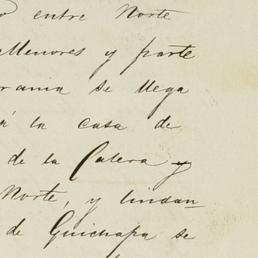 entre Norte
Menores y parte
rama se llega
a la casa de
de la Calera y
Norte, y lindan
de Guichapa se